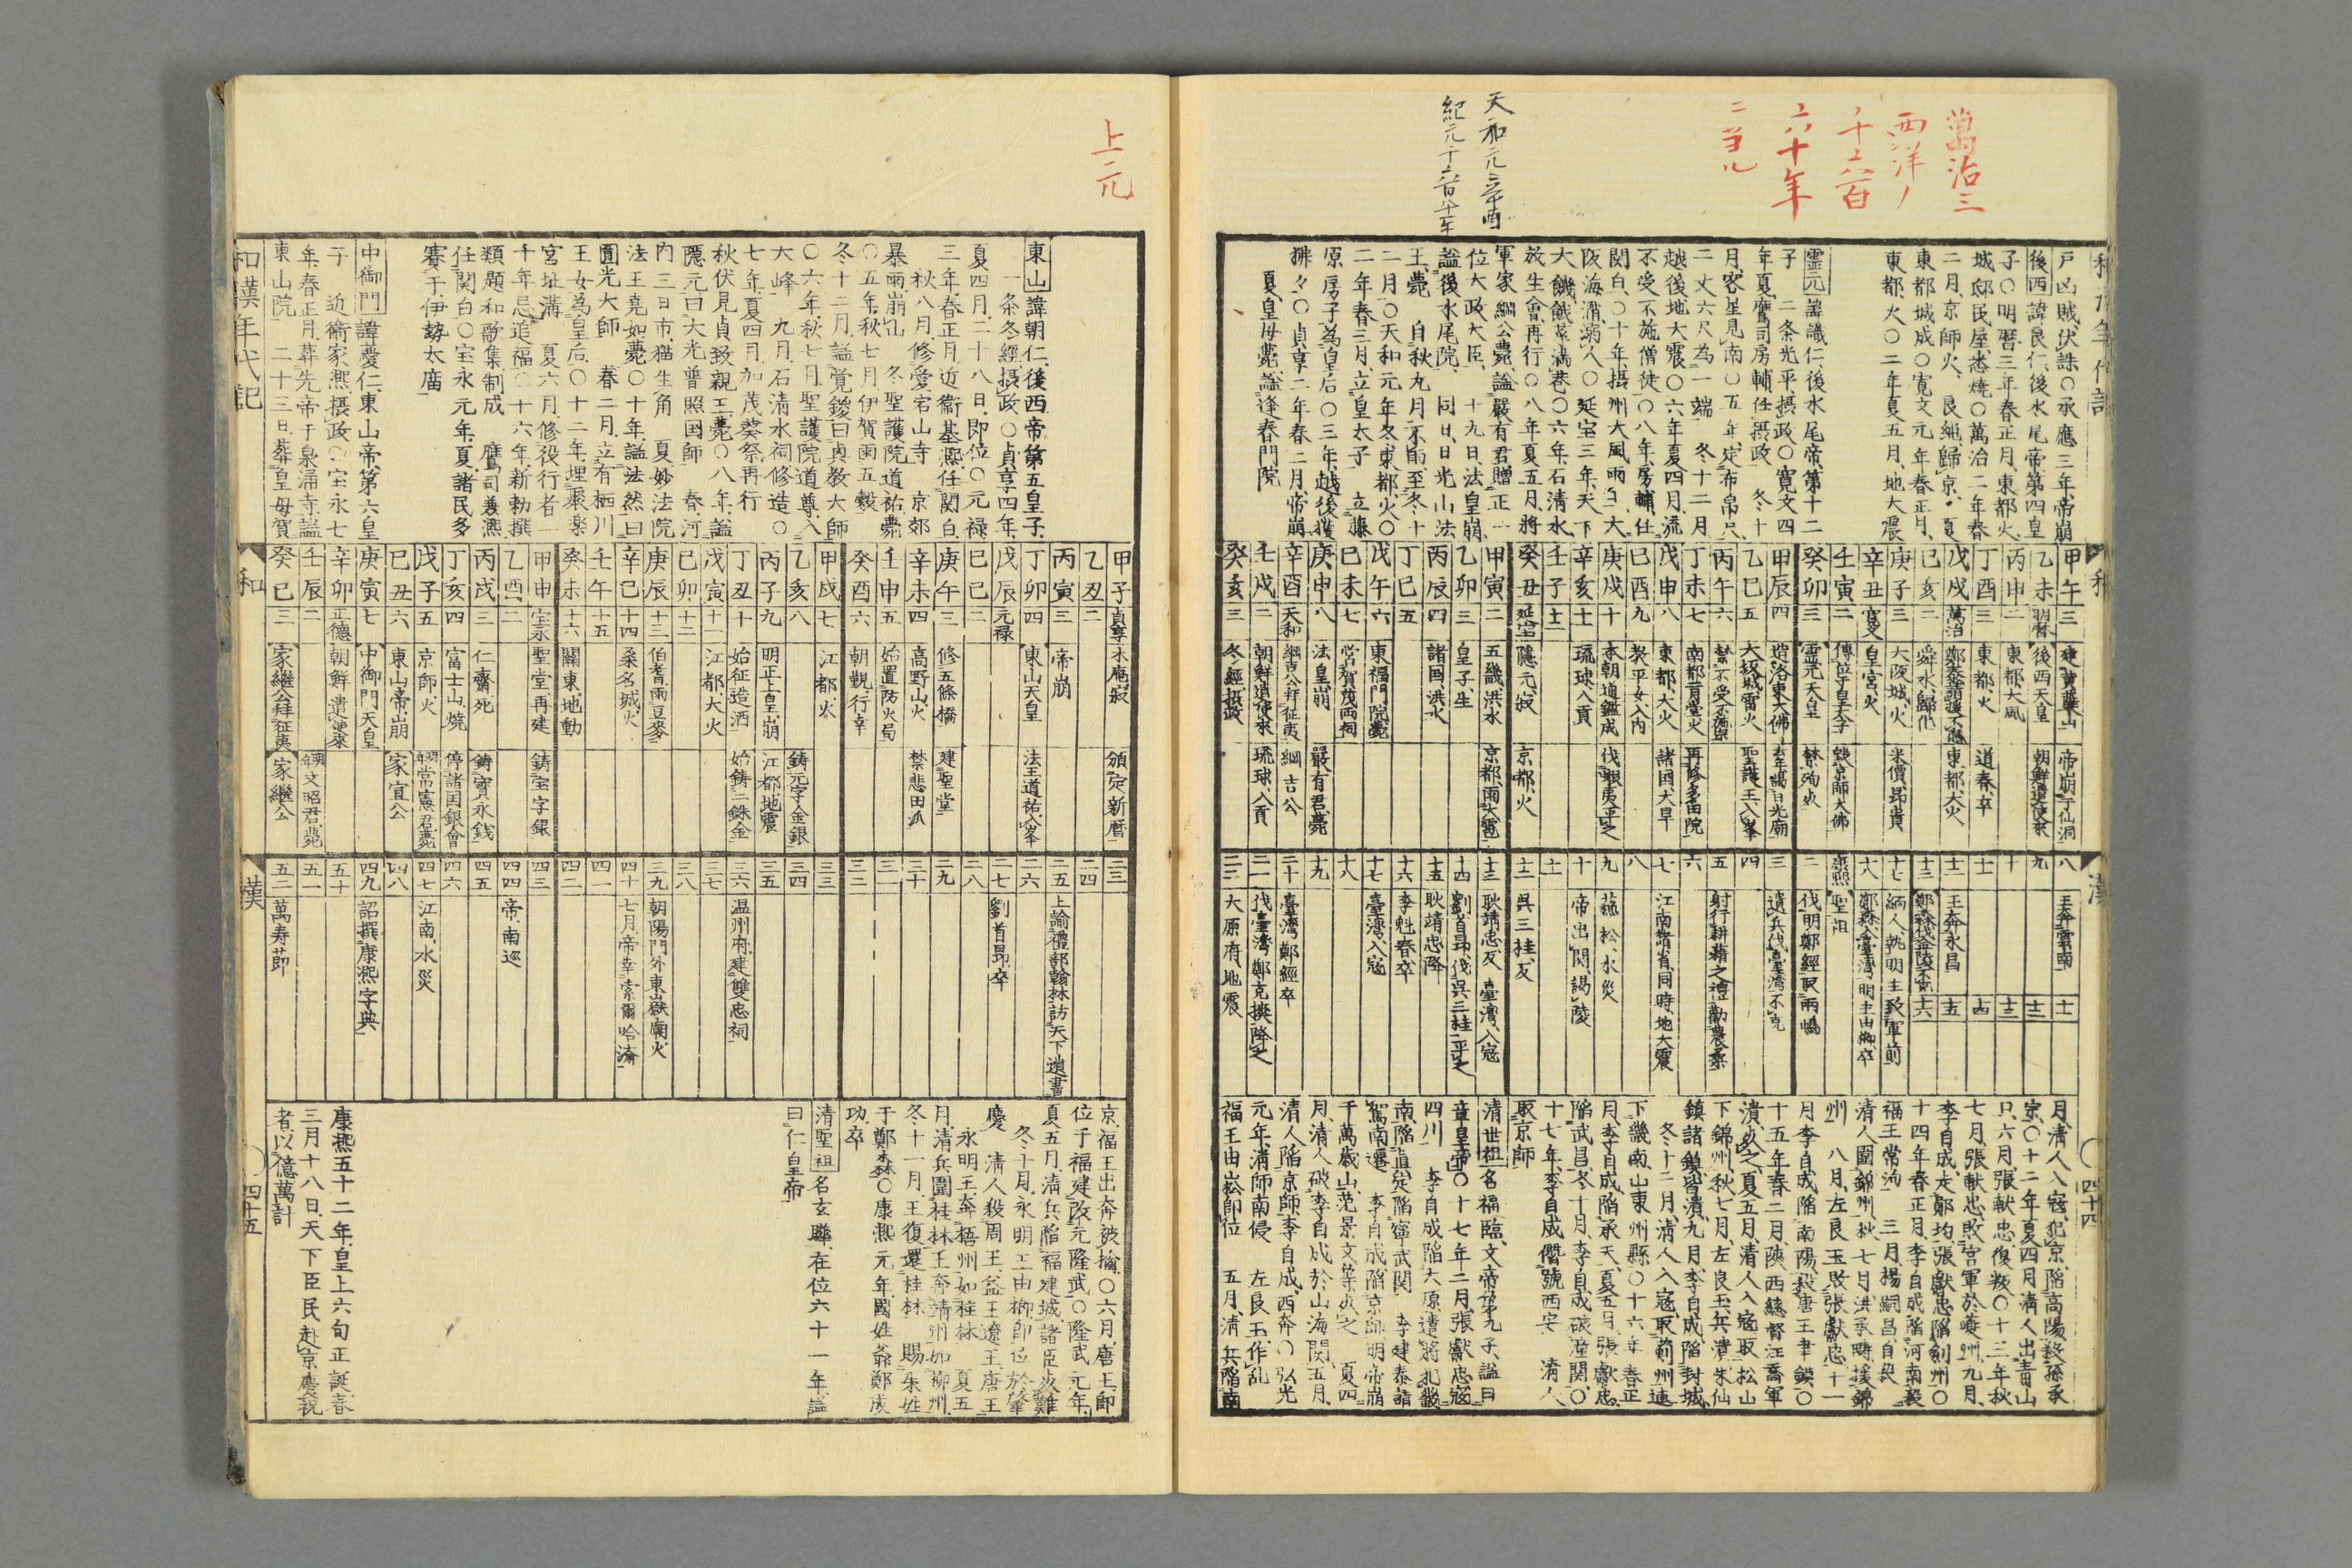 萬治三
西洋ノ
千六百
六十年
ニ当ル
天和元辛酉
紀元千六百八十一年
戸凶賊伏誅〇承應三年帝崩
後西諱良仁後水尾帝第四皇
子〇明暦三年春正月東都火
城邸民屋悉燒〇萬治二年春
二月京師火
東都城成〇寛文元年春正月
東都火〇二年夏五月地大震
靈元諱識仁後水尾帝第十二
子 二条光平摂政〇寛文四
年夏鷹司房輔任摂政 冬十
月客星見南〇五年定布帛尺
二丈六尺為一端 冬十二月
越後地大震〇六年夏四月流
不受不施僧徒〇八年房輔任
関白〇十年摂州大風雨
阪海涌溺人〇延宝三年天下
大饑餓莩満巷〇六年石清水
放生會再行〇八年夏五月将
軍家綱公薨謚嚴有君贈正一
位大政大臣 十九日法皇崩
謚後水尾院 同日日光山法
王薨 自秋九月不雨至冬十
二月〇天和元年冬東都火〇
二年春三月立皇太子 立藤
原房子為皇后〇三年越後獲
狒々〇貞享二年春二月帝崩
夏皇母薨謚逢春門院
和
甲午 三 建黄蘗山 帝崩于仙洞
乙未 明暦 後西天皇 朝鮮遣使來
丙申 二 東都大風
丁酉 三 東都火 道春卒
戊戌 萬治 東都大火
己亥 二 舜水歸化
庚子 三 大阪城火 米價昂貴
辛丑 寛文 皇宮火
壬寅 二 傳位于皇太子 毀京師大佛
癸卯 三 靈元天皇 禁殉死
甲辰 四 造洛東大佛
乙巳 五 大坂城雷火 聖護王入峯
丙午 六 禁不受不施宗
丁未 七 南都二月堂火
戊申 八 東都大火 諸國大旱
己酉 九 教平女入内
庚戌 十 本朝通鑑成 伐蝦夷平之
辛亥 十一 琉球入貢
壬子 十二
癸丑 延宝 隱元寂 京都火
甲寅 二 五畿洪水 京都雨大雹
乙卯 三 皇子生
丙辰 四 諸國洪水
丁巳 五
戊午 六 東福門院薨
己未 七 営賀茂両祠
庚申 八 法皇崩 嚴有君薨
辛酉 天和 綱吉公拜征夷 綱吉公
壬戌 二 朝鮮遣使來 琉球入貢
癸亥 三 冬經摂政
漢
八 王奔雲南 十一
九 十二
十 十三
十一 十四
十二 王奔永昌 十五
十三 鄭森伐金陵不克 十六
十七 緬人執明主致軍前
十八 鄭森入臺湾 明主由榔卒
康熙 聖祖
二 伐明鄭經取兩嶋
三 遣兵伐臺湾不克
四
五 射行耕藉之禮勸農桑
六
七 江南諸省同時地大震
八
九 蘓松水災
十 帝出関謁陵
十一
十二 呉三桂反
十三 耿靖忠反 臺湾入寇
十四 劉首昂伐呉三桂平之
十五 耿靖忠降
十六 李魁春卒
十七 臺湾入寇
十八
十九
二十 臺湾鄭經卒
二一 伐臺湾鄭克塽降之
二二 大原府地震
月清人入寇犯京陷高陽殺孫承
宗〇十二年夏四月清人出青山
口六月張献忠復叛〇十三年秋
七月張献忠敗官軍於夔州九月
李自成走鄭均張獻忠陷劍州〇
十四年春正月李自成陷河南殺
福王常洵 三月楊嗣昌自殺
清人圍錦州秋七月洪承疇援錦
州 八月左良玉敗張獻忠十一
月李自成陷南陽殺唐王聿鏌〇
十五年春二月陜西緫督江喬軍
潰死之夏五月清人入寇取松山
下錦州秋七月左良玉兵潰朱仙
鎮諸鎮皆潰九月李自成陷封城
冬十二月清人入寇取薊州連
下畿南山東州縣〇十六年春正
月李自成陷承天夏五月張獻忠
陷武昌冬十月李自成破潼関〇
十七年李自成僭號西安 清人
取京師
清世祖名福臨文帝第九子謚曰
章皇帝〇十七年二月張獻忠寇
四川 李自成陷大原遣將犯畿
南陷眞定陷寧武関 李建泰請
駕南遷 李自成陷京師明帝崩
千萬歳山范景文等死之 夏四
月清人破李自成於山海関五月
清人陷京師李自成西奔〇弘光
元年清師南侵 左良玉作乱
福王由崧即位 五月清兵陷南
四十四
上元
東山諱朝仁後西帝第五皇子
一条冬經摂政〇貞享四年
夏四月二十八日即位〇元禄
三年春正月近衛基熙任関白
秋八月修愛宕山寺 京郊
暴雨崩山 冬聖護院道祐薨
〇五年秋七月伊賀雨五穀
冬十二月謚覚鑁曰興教大師
〇六年秋七月聖護院道尊入
大峰 九月石清水祠修造〇
七年夏四月加茂葵祭再行
秋伏見貞致親王薨〇八年謚
隱元曰大光普照国師 春河
内三日市猫生角 夏妙法院
法王堯如薨〇十年謚法然曰
圓光大師 春二月立有栖川
王女為皇后〇十二年埋聚楽
宮址溝 夏六月修役行者一
千年忌追福〇十六年新勅撰
類題和歌集制成 鷹司兼熙
任関白〇宝永元年夏諸民多
賽于伊勢太廟
中御門諱慶仁東山帝第六皇
子 近衛家熙摂政〇宝永七
年春正月葬先帝于泉涌寺謚
東山院 二十三日葬皇母賀
和漢年代記
甲子 貞享 木庵寂 頒定新暦
乙丑 二
丙寅 三 帝崩
丁卯 四 東山天皇 法王道祐入峯
戊辰 元禄
己巳 二
庚午 三 修五條橋 建聖堂
辛未 四 高野山火 禁悲田派
壬申 五 始置防火局
癸酉 六 朝覲行幸
甲戌 七 江都火
乙亥 八 鋳元字金銀
丙子 九 明正上皇崩 江都地震
丁丑 十 始征造酒 始鋳二銖金
戊寅 十一 江都大火
己卯 十二
庚辰 十三 伯耆雨豆麥
辛巳 十四 桑名城火
壬午 十五
癸未 十六 關東地動
甲申 宝永 聖堂再建 鋳宝字銀
乙酉 二
丙戌 三 仁齋死 鋳寳永銭
丁亥 四 富士山燒 停諸国銀會
戊子 五 京師火
己丑 六 東山帝崩 家宣公
庚寅 七 中御門天皇
辛卯 正徳 朝鮮遣使來
壬辰 二 文昭君薨
癸巳 三 家繼公拜征夷 家繼公
和
二三
二四
二五 上諭禮部翰林訪天下遺書
二六
二七 劉首昂卒
二八
二九
三十
三一
三二
三三
三四
三五
三六 温州府建雙忠祠
三七
三八
三九 朝陽門外東嶽廟火
四十 七月帝幸索爾哈済
四一
四二
四三
四四 帝南巡
四五
四六
四七 江南水災
四八
四九 詔撰康熙字典
五十
五一
五二 萬寿莭
漢
京福王出奔被擒〇六月唐王即
位于福建改元隆武〇隆武元年
夏五月清兵陷福建城諸臣死難
冬十月永明王由榔即位於肇
慶 清人殺周王益王遼王唐王
永明王奔梧州如桂林 夏五
月清兵圍桂林王奔靖州如柳州
冬十一月王復還桂林 賜朱姓
于鄭森〇康熙元年國姓爺鄭成
功卒
清聖祖名玄曄在位六十一年謚
曰仁皇帝
康熙五十二年皇上六旬正誕春
三月十八日天下臣民赴京慶祝
者以億萬計
四十五